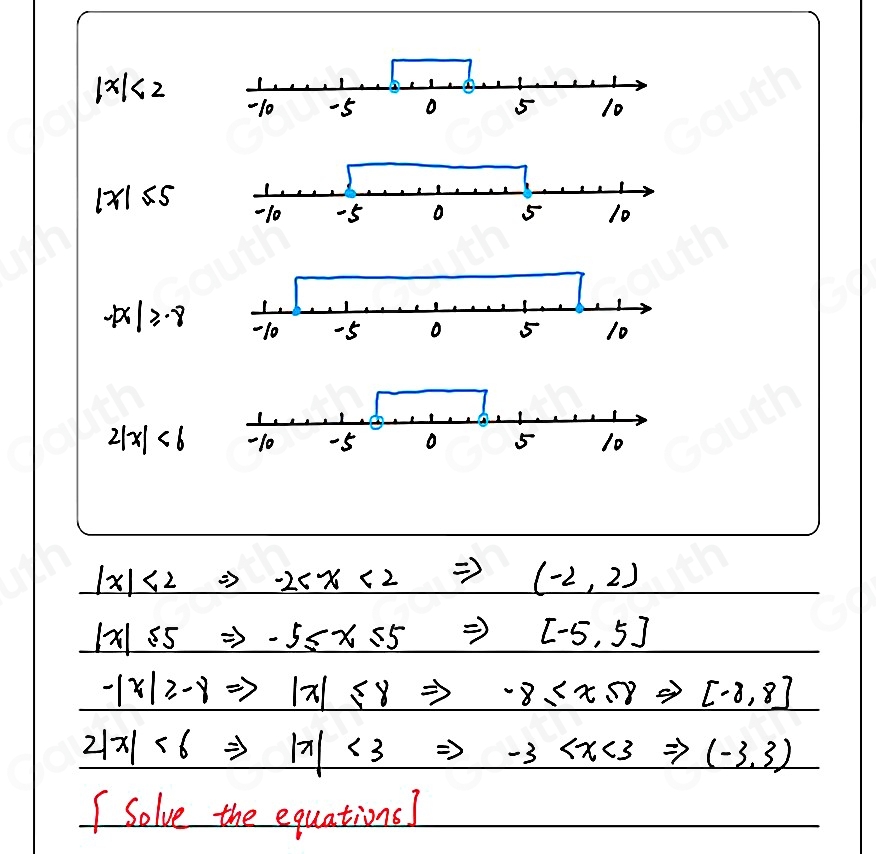 |x|<2
-10 -5 0 5 10
|x| ≤5
-10 -5 0 5 10
-|x| ≥-8
-10 -5 0 5 10
2|x| <6
-10 -5 0 5 10
|x|<2 ⇒ -2<x<2 ⇒ (-2, 2)
|x| ≤5 ⇒ -5≤x≤5 ⇒ [-5, 5]
-|x|≥-8 ⇒ |x| ≤8 ⇒ -8≤x≤8 ⇒ [-8,8]
2|x| <6 ⇒ |x| <3 ⇒ -3 <x<3 ⇒ (-3,3)
[Solve the equations]
Gauth